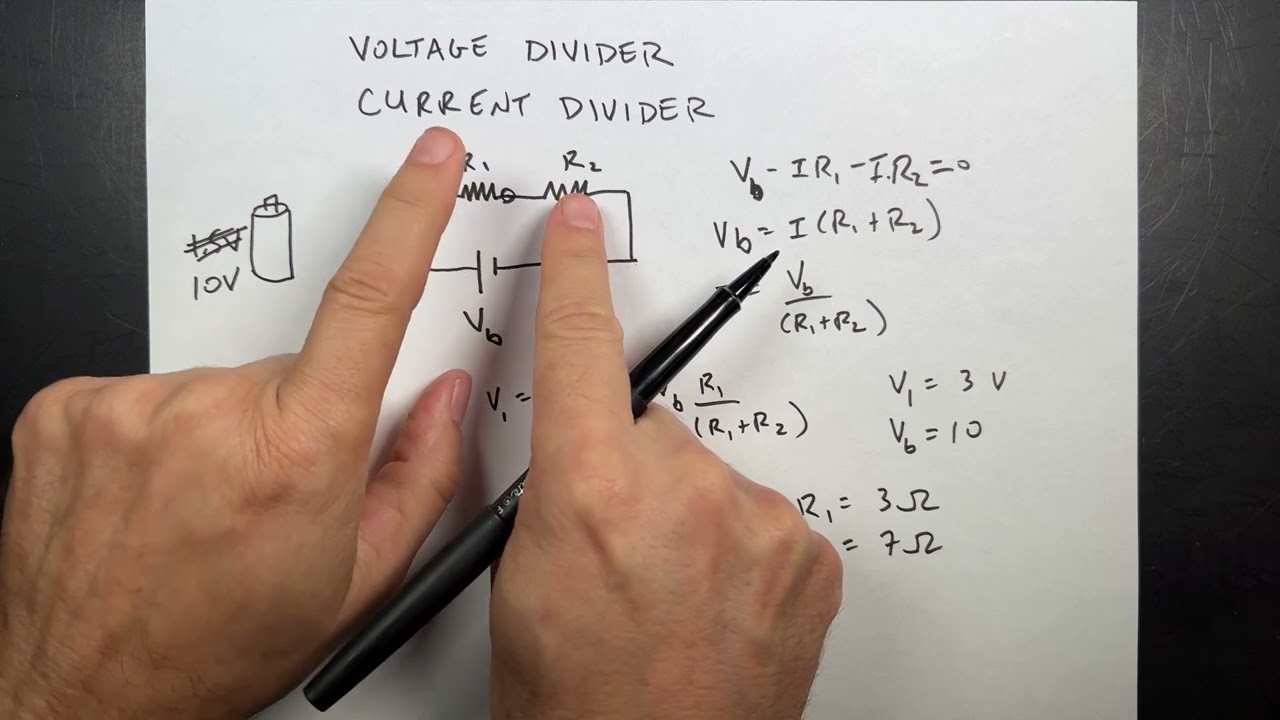 VOLTAGE DIVIDER
CURRENT DIVIDER
R₁ R₂
1.5V
10V
V_b
V_b - IR₁ - I·R₂ = 0
V_b = I(R₁ + R₂)
V_b / (R₁ + R₂)
V₁ = V_b R₁ / (R₁ + R₂)
V₁ = 3 V
V_b = 10
R₁ = 3Ω
= 7Ω